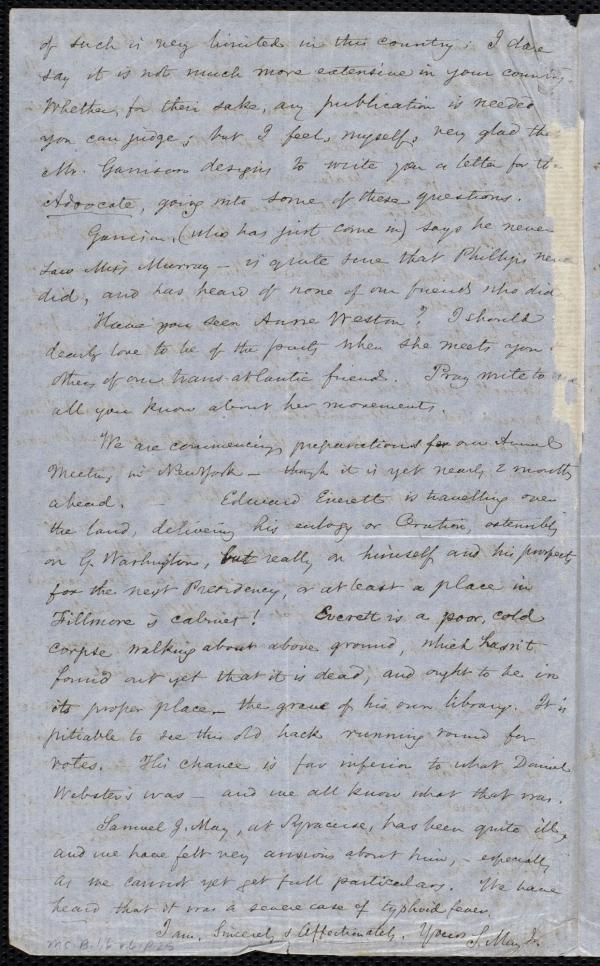 of such is very limited in this country; I dare
say it is not much more extensive in your country.
Whether, for their sake, any publication is needed
you can judge; but I feel, myself, very glad tha
Mr. Garrison designs to write you a letter for the
Advocate, going into some of these questions.
Garrison, (who has just come in) says he never
saw Miss Murray – is quite sure that Phillips never
did, and has heard of none of our friends who did.
Have you seen Anne Weston? I should
dearly love to be of the party when she meets you &
others of our trans-atlantic friends. Pray write to me
all you know about her movements.
We are commencing preparations for our Annual
Meeting in New York – though it is yet nearly 2 months
ahead. – Edward Everett is travelling over
the land, delivering his eulogy or Oration, ostensibly
on G. Washington, but really on himself and his prospects
for the next Presidency, or at least a place in
Fillmore's cabinet! Everett is a poor, cold
corpse walking about above ground, which hasn't
found out yet that it is dead, and ought to be in
its proper place – the grave of his own library. It is
pitiable to see this old hack running round for
votes. His chance is far inferior to what Daniel
Webster's was – and we all know what that was.
Samuel J. May, at Syracuse, has been quite ill,
and we have felt very anxious about him, – especially
as we cannot yet get full particulars. We have
heard that it was a severe case of typhoid fever.
I am, Sincerely & Affectionately, Yours S. May Jr.